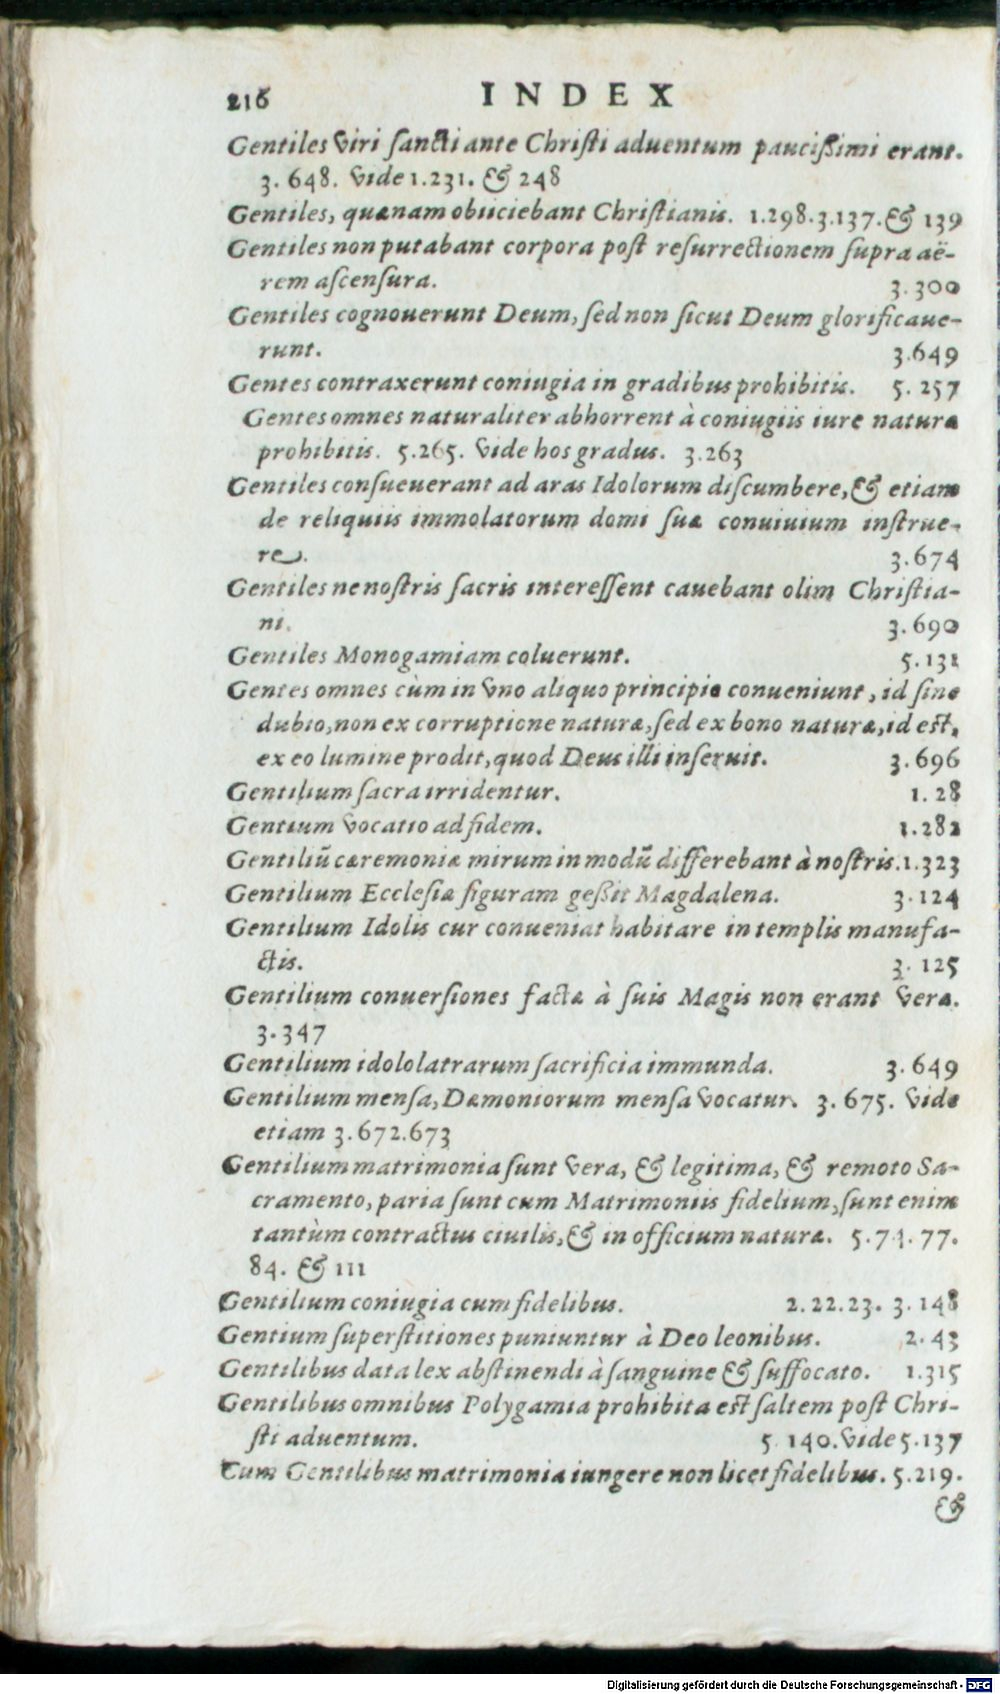 216 INDEX
Gentiles viri sancti ante Christi aduentum paucißimi erant.
3. 648. vide 1.231. & 248
Gentiles, quænam obiiciebant Christianis. 1.298.3.137.& 139
Gentiles non putabant corpora post resurrectionem supra aë-
rem ascensura. 3.300
Gentiles cognouerunt Deum, sed non sicut Deum glorificaue-
runt. 3.649
Gentes contraxerunt coniugia in gradibus prohibitis. 5. 257
Gentes omnes naturaliter abhorrent à coniugiis iure naturæ
prohibitis. 5.265. vide hos gradus. 3.263
Gentiles consueuerant ad aras Idolorum discumbere, & etiam
de reliquiis immolatorum domi suæ conuiuium instrue-
re. 3.674
Gentiles ne nostris sacris interessent cauebant olim Christia-
ni. 3.690
Gentiles Monogamiam coluerunt. 5.131
Gentes omnes cùm in vno aliquo principio conueniunt, id sine
dubio, non ex corruptione naturæ, sed ex bono naturæ, id est,
ex eo lumine prodit, quod Deus illi inseruit. 3.696
Gentilium sacra irridentur. 1. 28
Gentium vocatio ad fidem. 1.282
Gentiliũ cæremoniæ mirum in modũ differebant à nostris. 1.323
Gentilium Ecclesiæ figuram geßit Magdalena. 3.124
Gentilium Idolis cur conueniat habitare in templis manufa-
ctis. 3. 125
Gentilium conuersiones factæ à suis Magis non erant veræ.
3.347
Gentilium idololatrarum sacrificia immunda. 3.649
Gentilium mensa, Dæmoniorum mensa vocatur. 3. 675. vide
etiam 3.672.673
Gentilium matrimonia sunt vera, & legitima, & remoto Sa-
cramento, paria sunt cum Matrimoniis fidelium, sunt enim
tantùm contractus ciuilis, & in officium naturæ. 5.74.77.
84. & 111
Gentilium coniugia cum fidelibus. 2.22.23. 3.148
Gentium superstitiones puniuntur à Deo leonibus. 2.43
Gentilibus data lex abstinendi à sanguine & suffocato. 1.315
Gentilibus omnibus Polygamia prohibita est saltem post Chri-
sti aduentum. 5. 140. vide 5.137
Cum Gentilibus matrimonia iungere non licet fidelibus. 5.219.
&
Digitalisierung gefördert durch die Deutsche Forschungsgemeinschaft - DFG